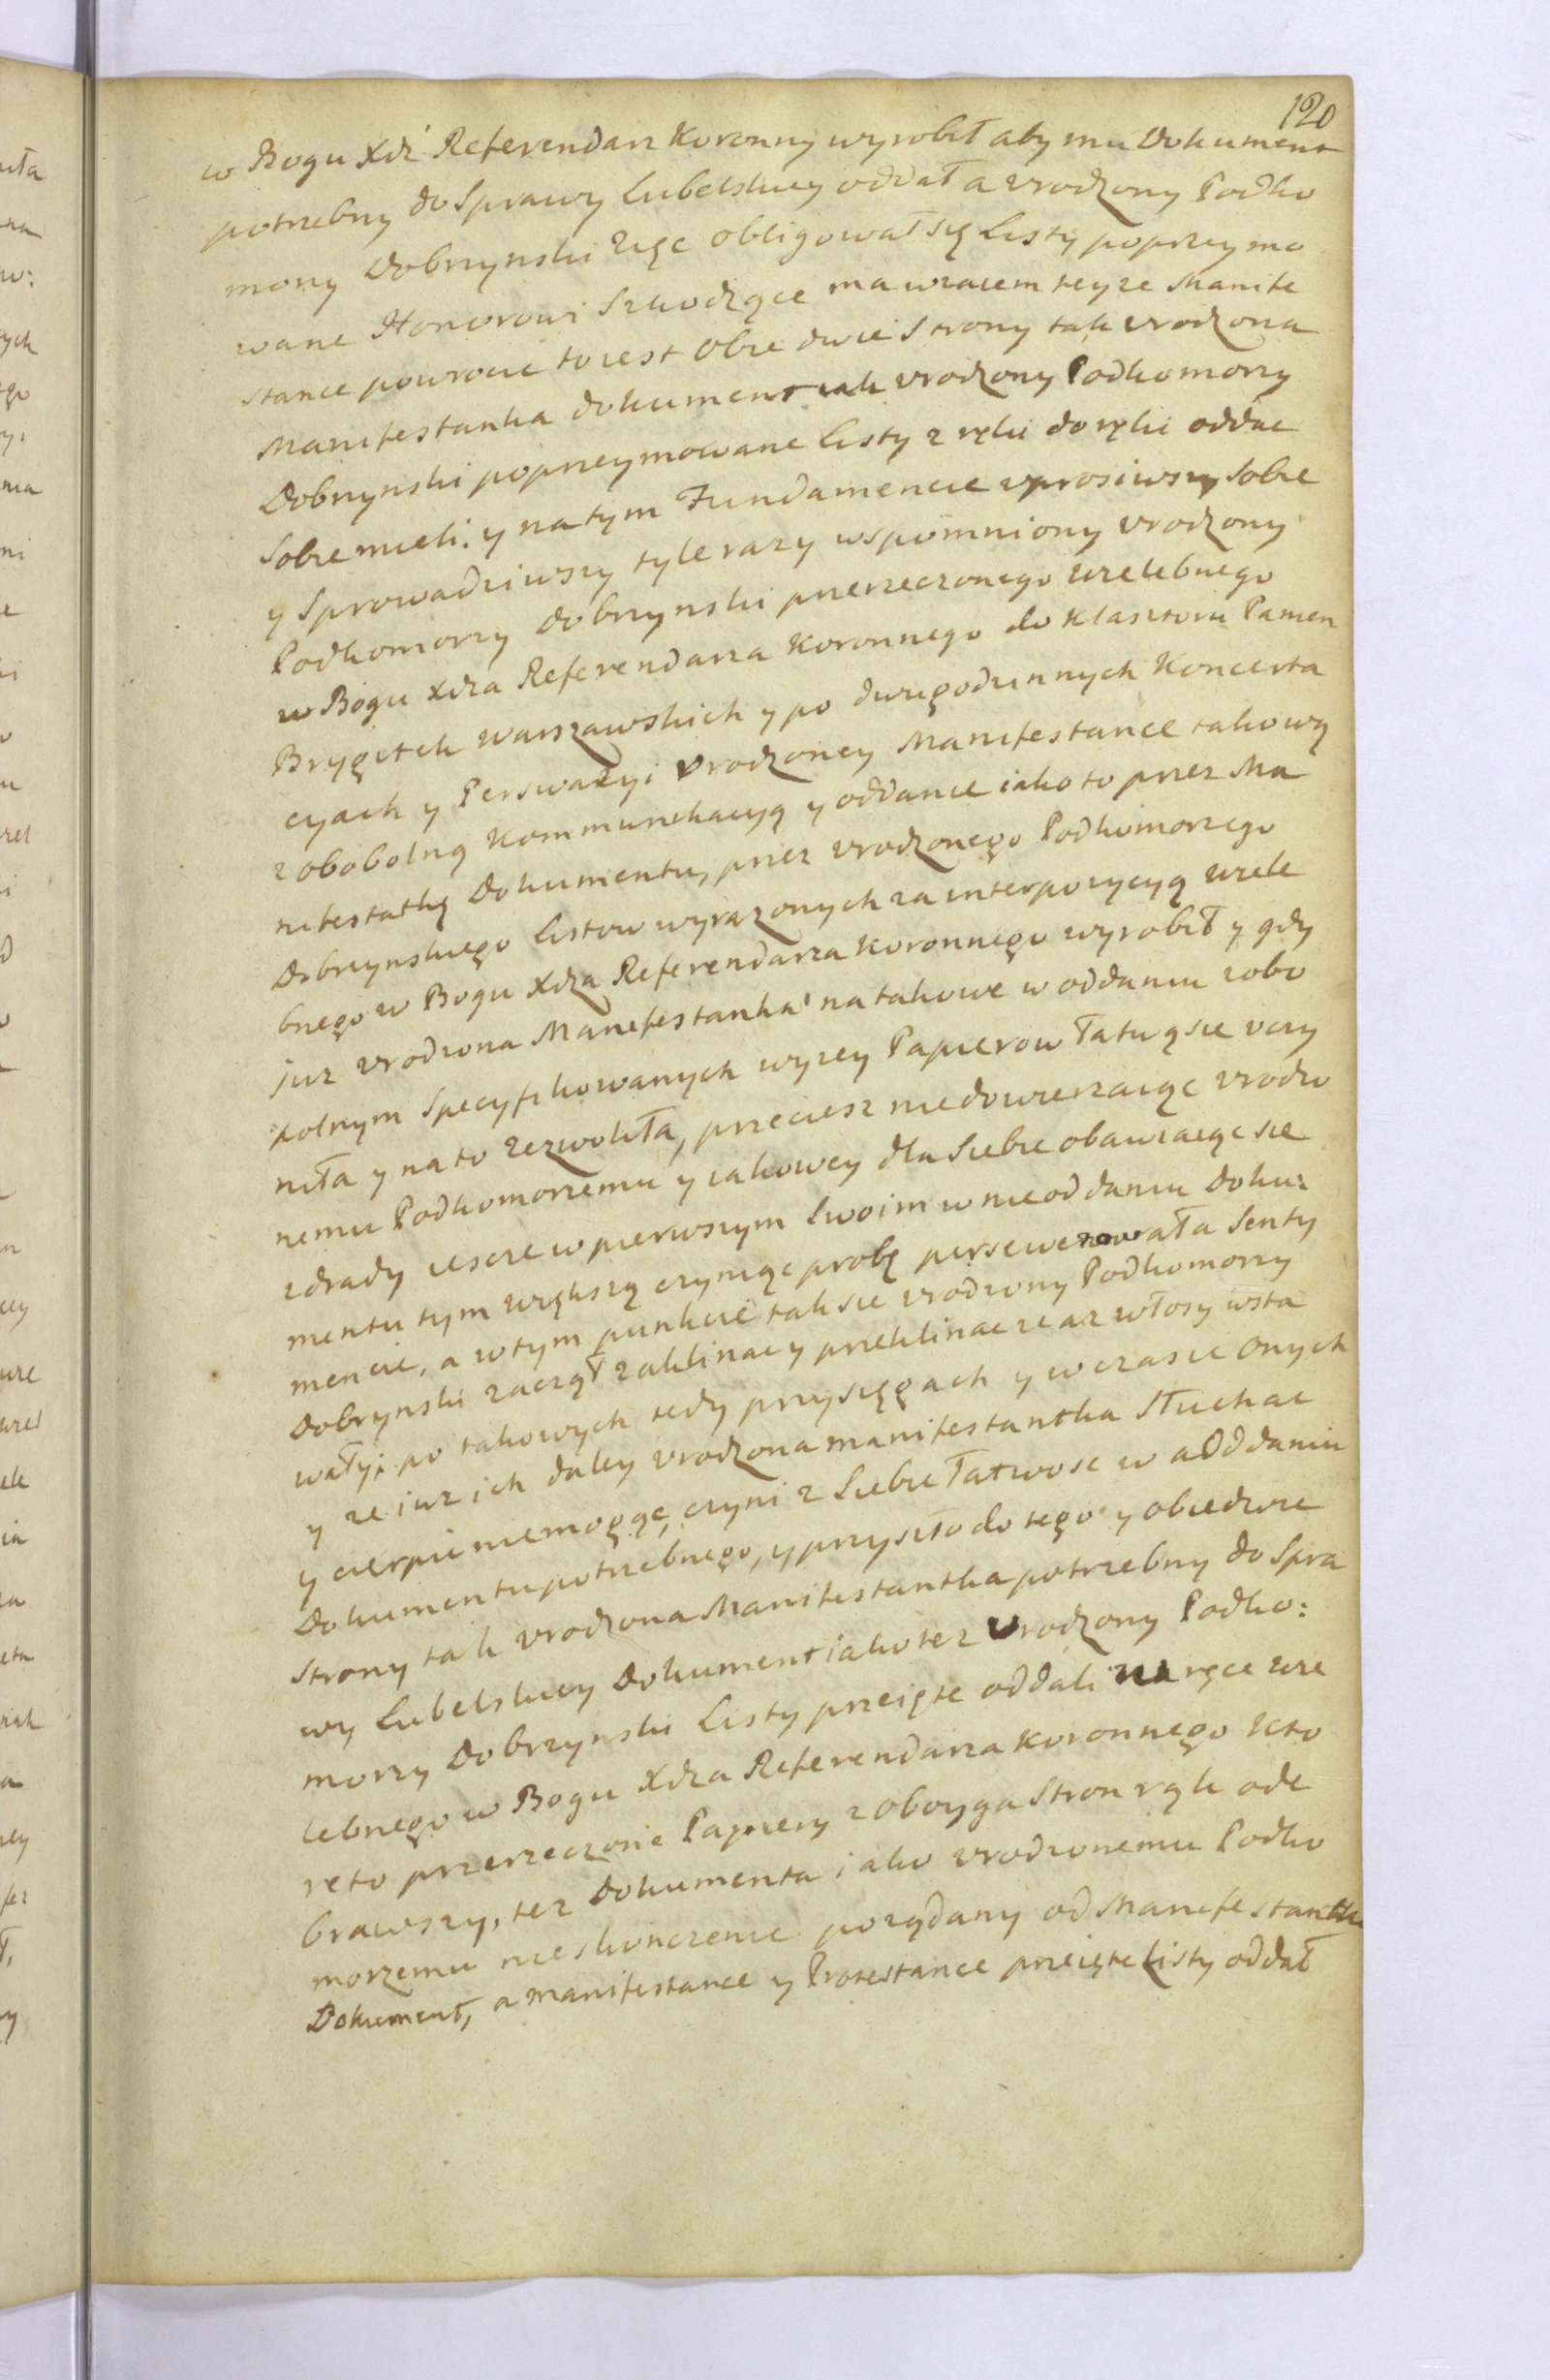 120
w Bogu Xdz Referendarz Koronny wyrobił aby mu Dokument
potrzebny do Sprawy Lubelskiey oddał a vrodzony Podko
mony Dobrzynski zięc obligował się Listy poprzeymo
wane Honorowi Szkodzące ma wzaiem teyze Manife
stance powrocic to iest Obie dwie Strony tak vrodzona
Manifestanka dokument iak vrodzony Podkomorzy
Dobrzynski poprzeymowane Listy z ręki do ręki oddac
Sobie mieli. y na tym Fundamencie vprosiwszy Sobie
y Sprowadziwszy tyle razy wspomniony vrodzony
Podkomorzy dobrzynski przerzeczonego wielebnego
w Bogu Xdza Referendarza Koronnego do Klasztoru Panien
Brygitek Warszawskich y po dwugodzinnych Koncerta
cyach y Perswazyi vrodzoney Manifestance takową
zobobolną Kommunikacyą y oddanie iako to przez Ma
nifestatkę Dokumentu, przez vrodzonego Podkomorzego
Dobrzynskiego Listow wyrazonych za interpozycyą wiele
bnego w Bogu Xdza Referendarza Koronnego wyrobił y gdy
juz vrodzona Manifestanka na takowe w oddaniu zobo
polnym Specyfikowanych wyzey Papierow łatwą sie vczy
niła y na to zezwoliła, przeciesz niedowierzaiąc vrodzo
nemu Podkomorzemu y iakowey dla Siebie obawiaiąc sie
zdrady ieszcze w pierwszym Swoim w nieoddaniu doku:
mentu tym większą czyniąc probę persewerowała Senty
mencie, a w tym punkcie tak sie vrodzony Podkomorzy
Dobrzynski zaczął zaklinac y przeklinac ze az włosy wsta
wały, po takowych tedy przysięgach y w czasie Onych
y ze iuz ich daley vrodzona manifestantka Słuchac
y cierpiec niemogąc, czyni z Siebie łatwosc w addaniu
Dokumentu potrzebnego, y przyszło do tego y obiedwie
Strony tak vrodzona Manifestantka potrzebny do Spra
wy Lubelskiey Dokument iako tez Vrodzony Podko:
morzy Dobrzynski Listy przeięte oddali na ręce wie
lebnego w Bogu Xdza Referendarza Koronnego Kto
reto przerzeczone Papiery z oboyga Stron rąk ode
brawszy, tez Dokumenta iako vrodzonemu Podko
morzemu nieskonczenie pożądany od Manifestantki
Dokument, a manifestance y Protestance przeięte Listy oddał